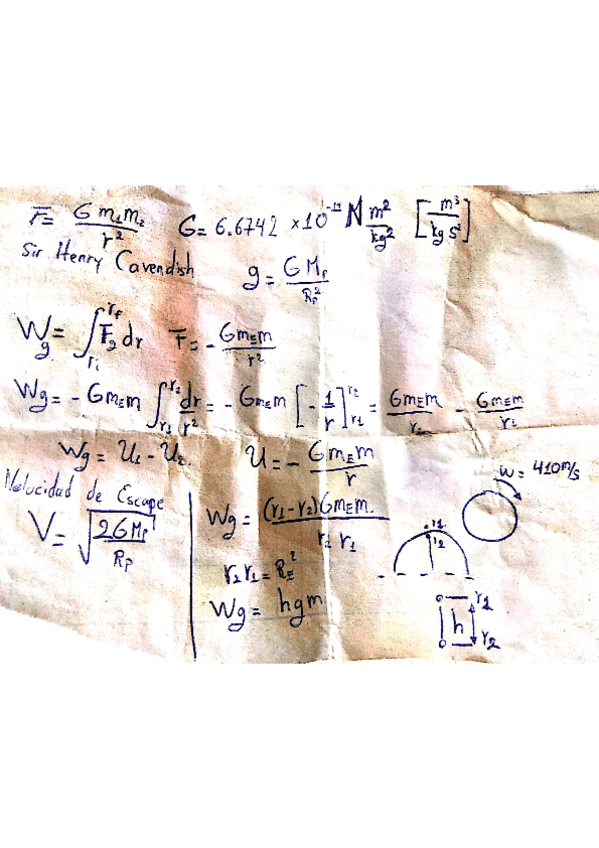 F = G m₁m₂ / r²    G = 6.6742 × 10⁻¹¹ N m²/kg² [m³/kg s²]
Sir Henry Cavendish    g = G Mₚ / Rₚ²
Wg = ∫_{ri}^{rf} Fg dr    F = - G m_E m / r²
Wg = - G m_E m ∫_{r₁}^{r₂} dr/r² = - G m_E m [- 1/r]_{r₁}^{r₂} = G m_E m / r₂ - G m_E m / r₁
Wg = U₁ - U₂    U = - G m_E m / r
w = 410 m/s
Velucidad de Escape
V = √(2 G Mₚ / Rₚ)
Wg = (r₁ - r₂) G m_E m / r₂ r₁
r₁
r₂
r₂ r₁ = R_E²
Wg = hgm
r₁
h
r₂